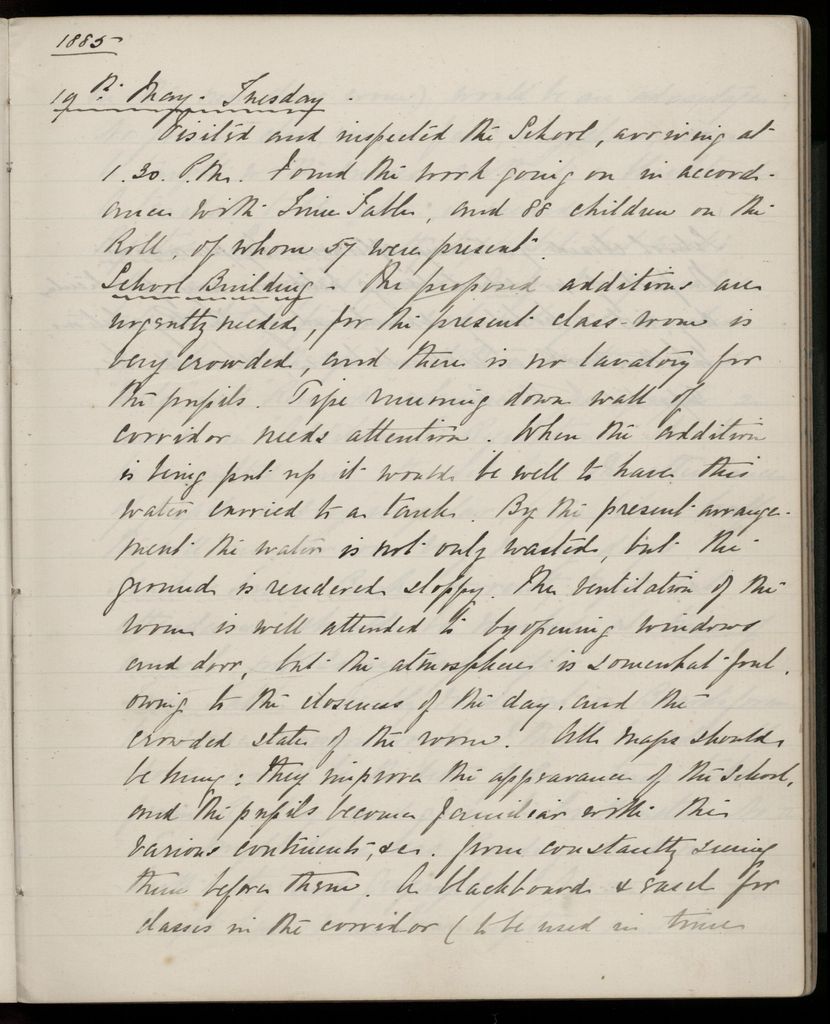 1885
19th May. Tuesday.
Visited and inspected the School, arriving at
1.30. P.M. Found the work going on in accord-
ance with Time Table, and 88 children on the
Roll, of whom 57 were present.
School Building - The proposed additions are
urgently needed, for the present class-room is
very crowded, and there is no lavatory for
the pupils. Pipe running down wall of
corridor needs attention. When the addition
is being put up it would be well to have this
water carried to a tank. By the present arrange-
ment the water is not only wasted, but the
ground is rendered sloppy. The ventilation of the
room is well attended to by opening windows
and door, but the atmosphere is somewhat foul,
owing to the closeness of the day, and the
crowded state of the room. All maps should
be hung: they improve the appearance of the School,
and the pupils become familiar with the
various continents, &c. from constantly seeing
them before them. A blackboard & easel for
classes in the corridor (to be used in time